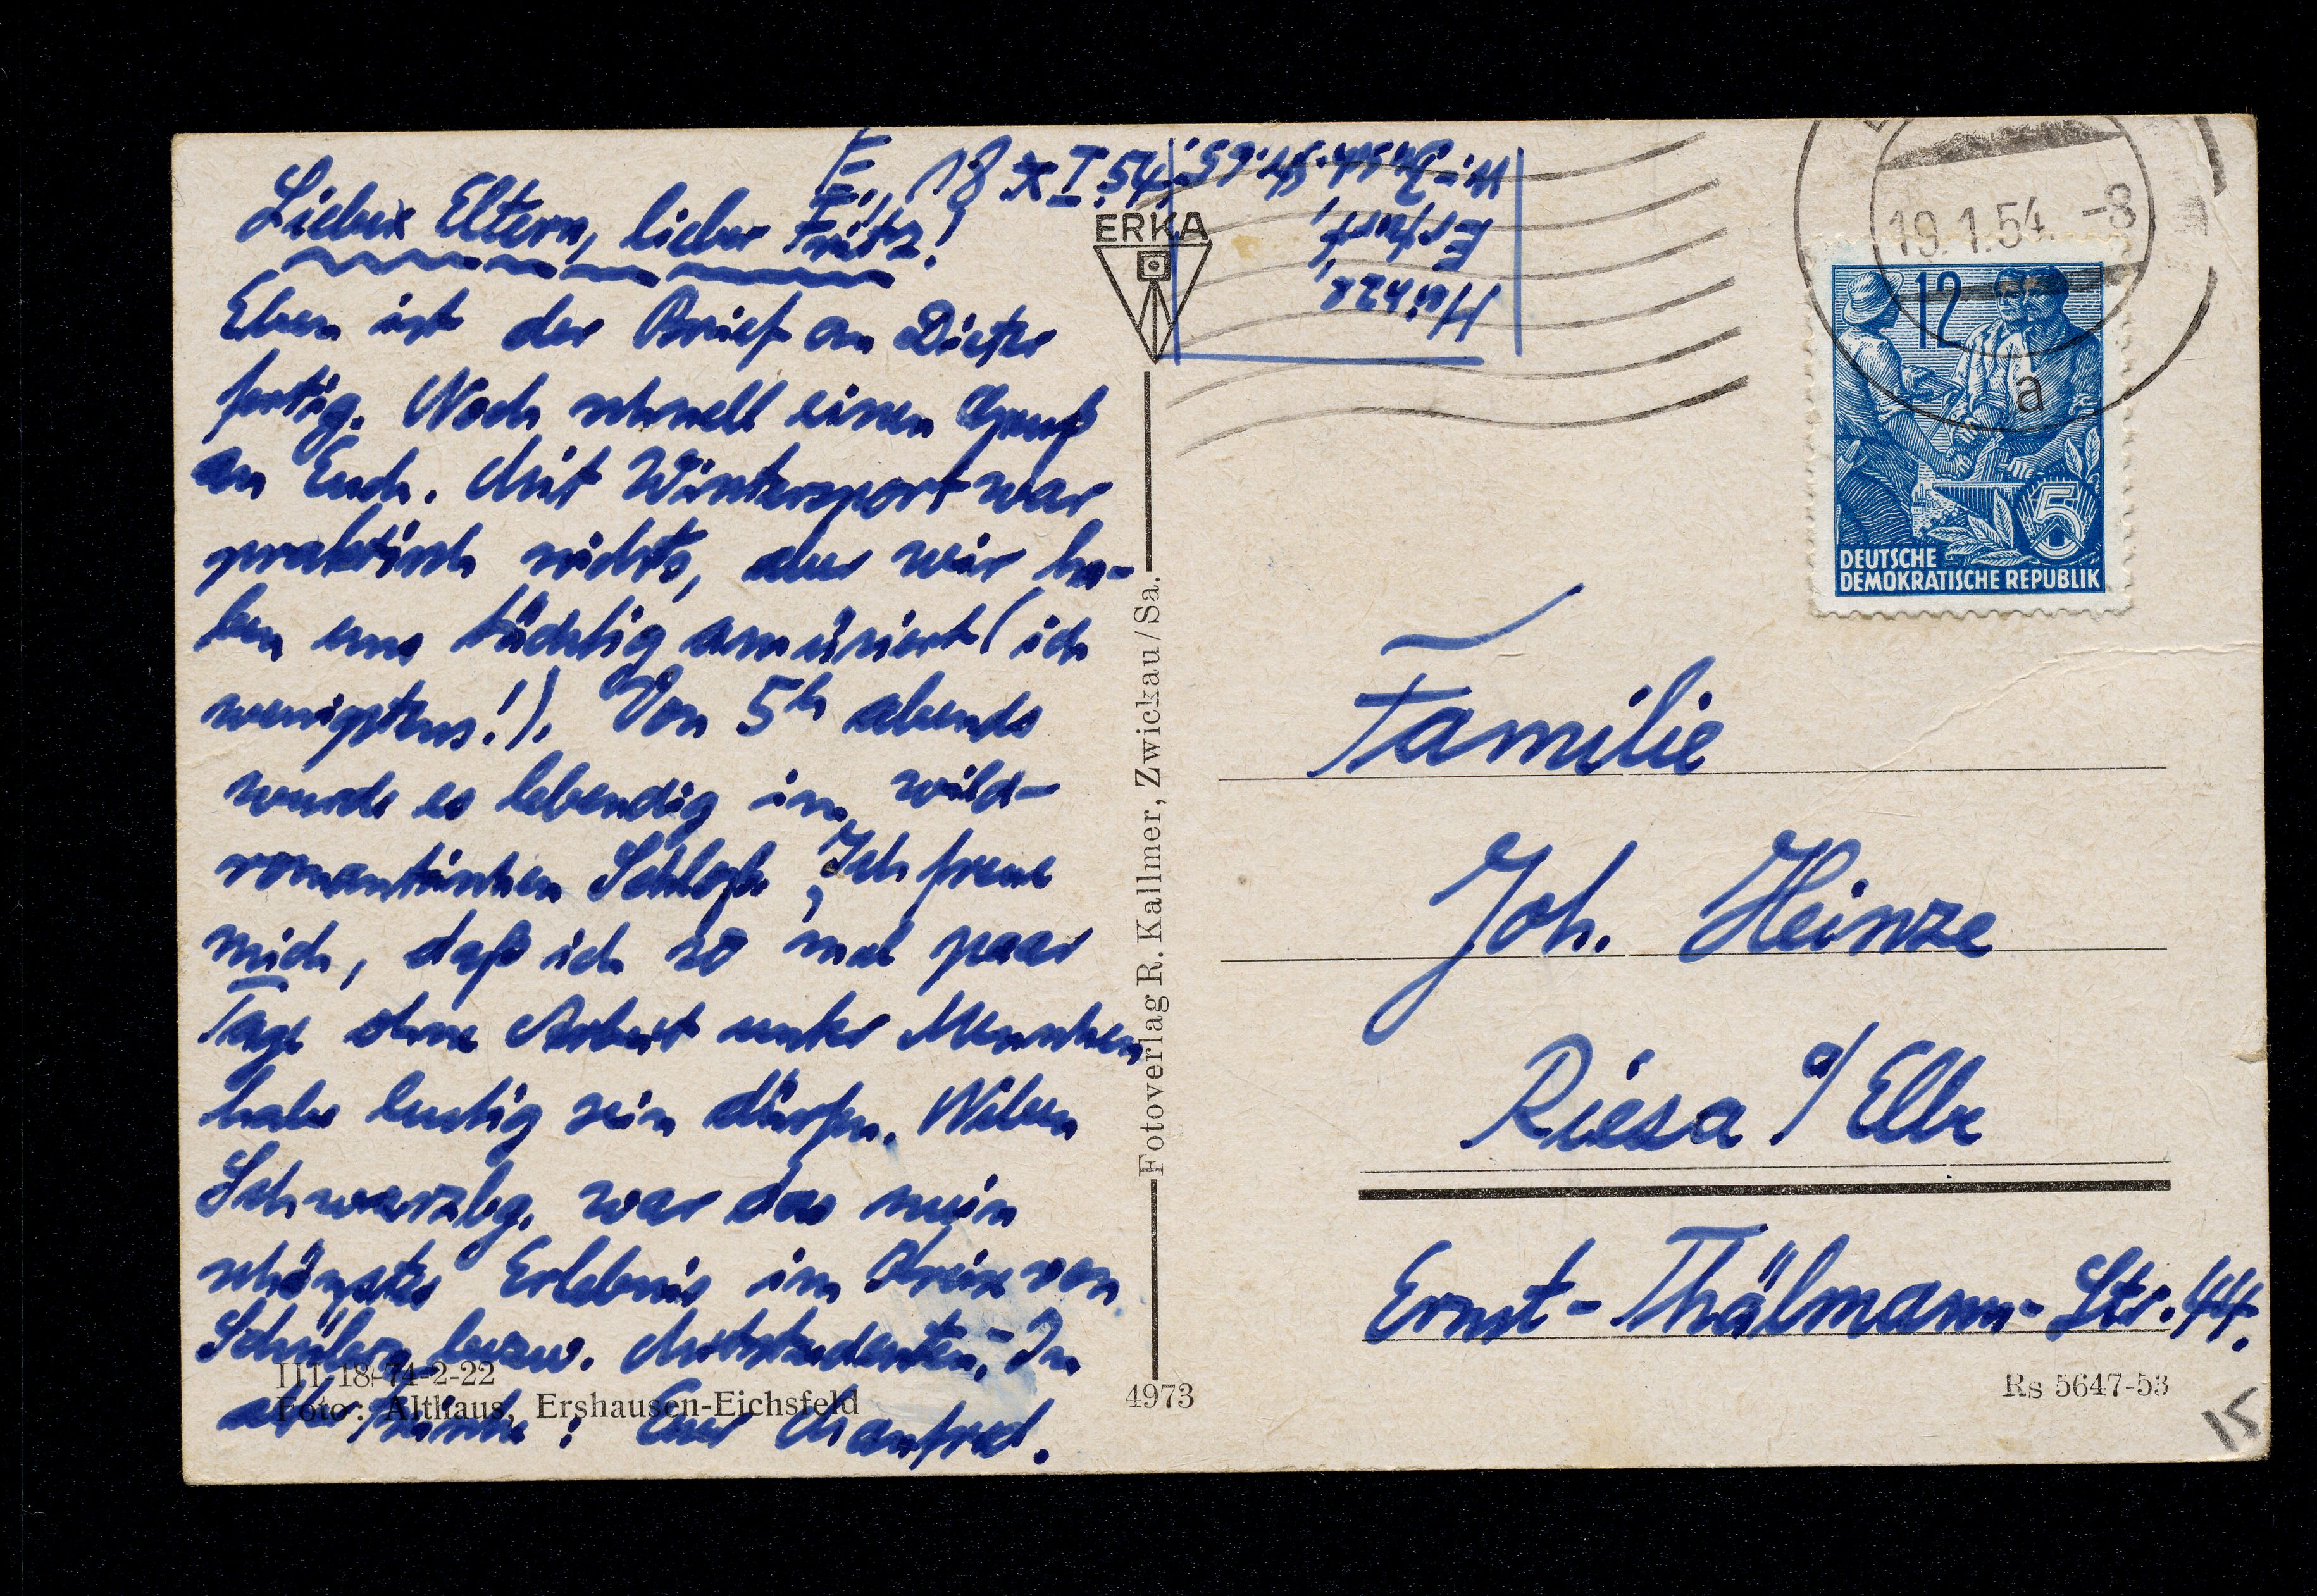 E., 18. I. 54.
Liebe Eltern, lieber Fritz!
Eben ist der Brief an Dieter
fertig. Noch schnell einen Gruß
an Euch. Mit Wintersport war
praktisch nichts, aber wir ha-
ben uns tüchtig amüsiert (ich
wenigstens!). Von 5h abends
wurde es lebendig im wild-
romantischen Schloß. Ich freue
mich, daß ich so mal paar
Tage ohne Arbeit unter Menschen
habe lustig sein dürfen. Neben
Schwarzbg. war das mein
schönstes Erlebnis im Kreise von
Schülern bezw. Mitstudenten. - In
alter Frische: Euer Manfred.
III 18-74-2-22
Foto: Althaus, Ershausen-Eichsfeld
ERKA
Fotoverlag R. Kallmer, Zwickau/Sa.
4973
Heinze
Erfurt,
19.1.54.-8
a
12
5
DEUTSCHE
DEMOKRATISCHE REPUBLIK
Familie
Joh. Heinze
Riesa a/Elbe
Ernst-Thälmann-Str. 44.
Rs 5647-53
15